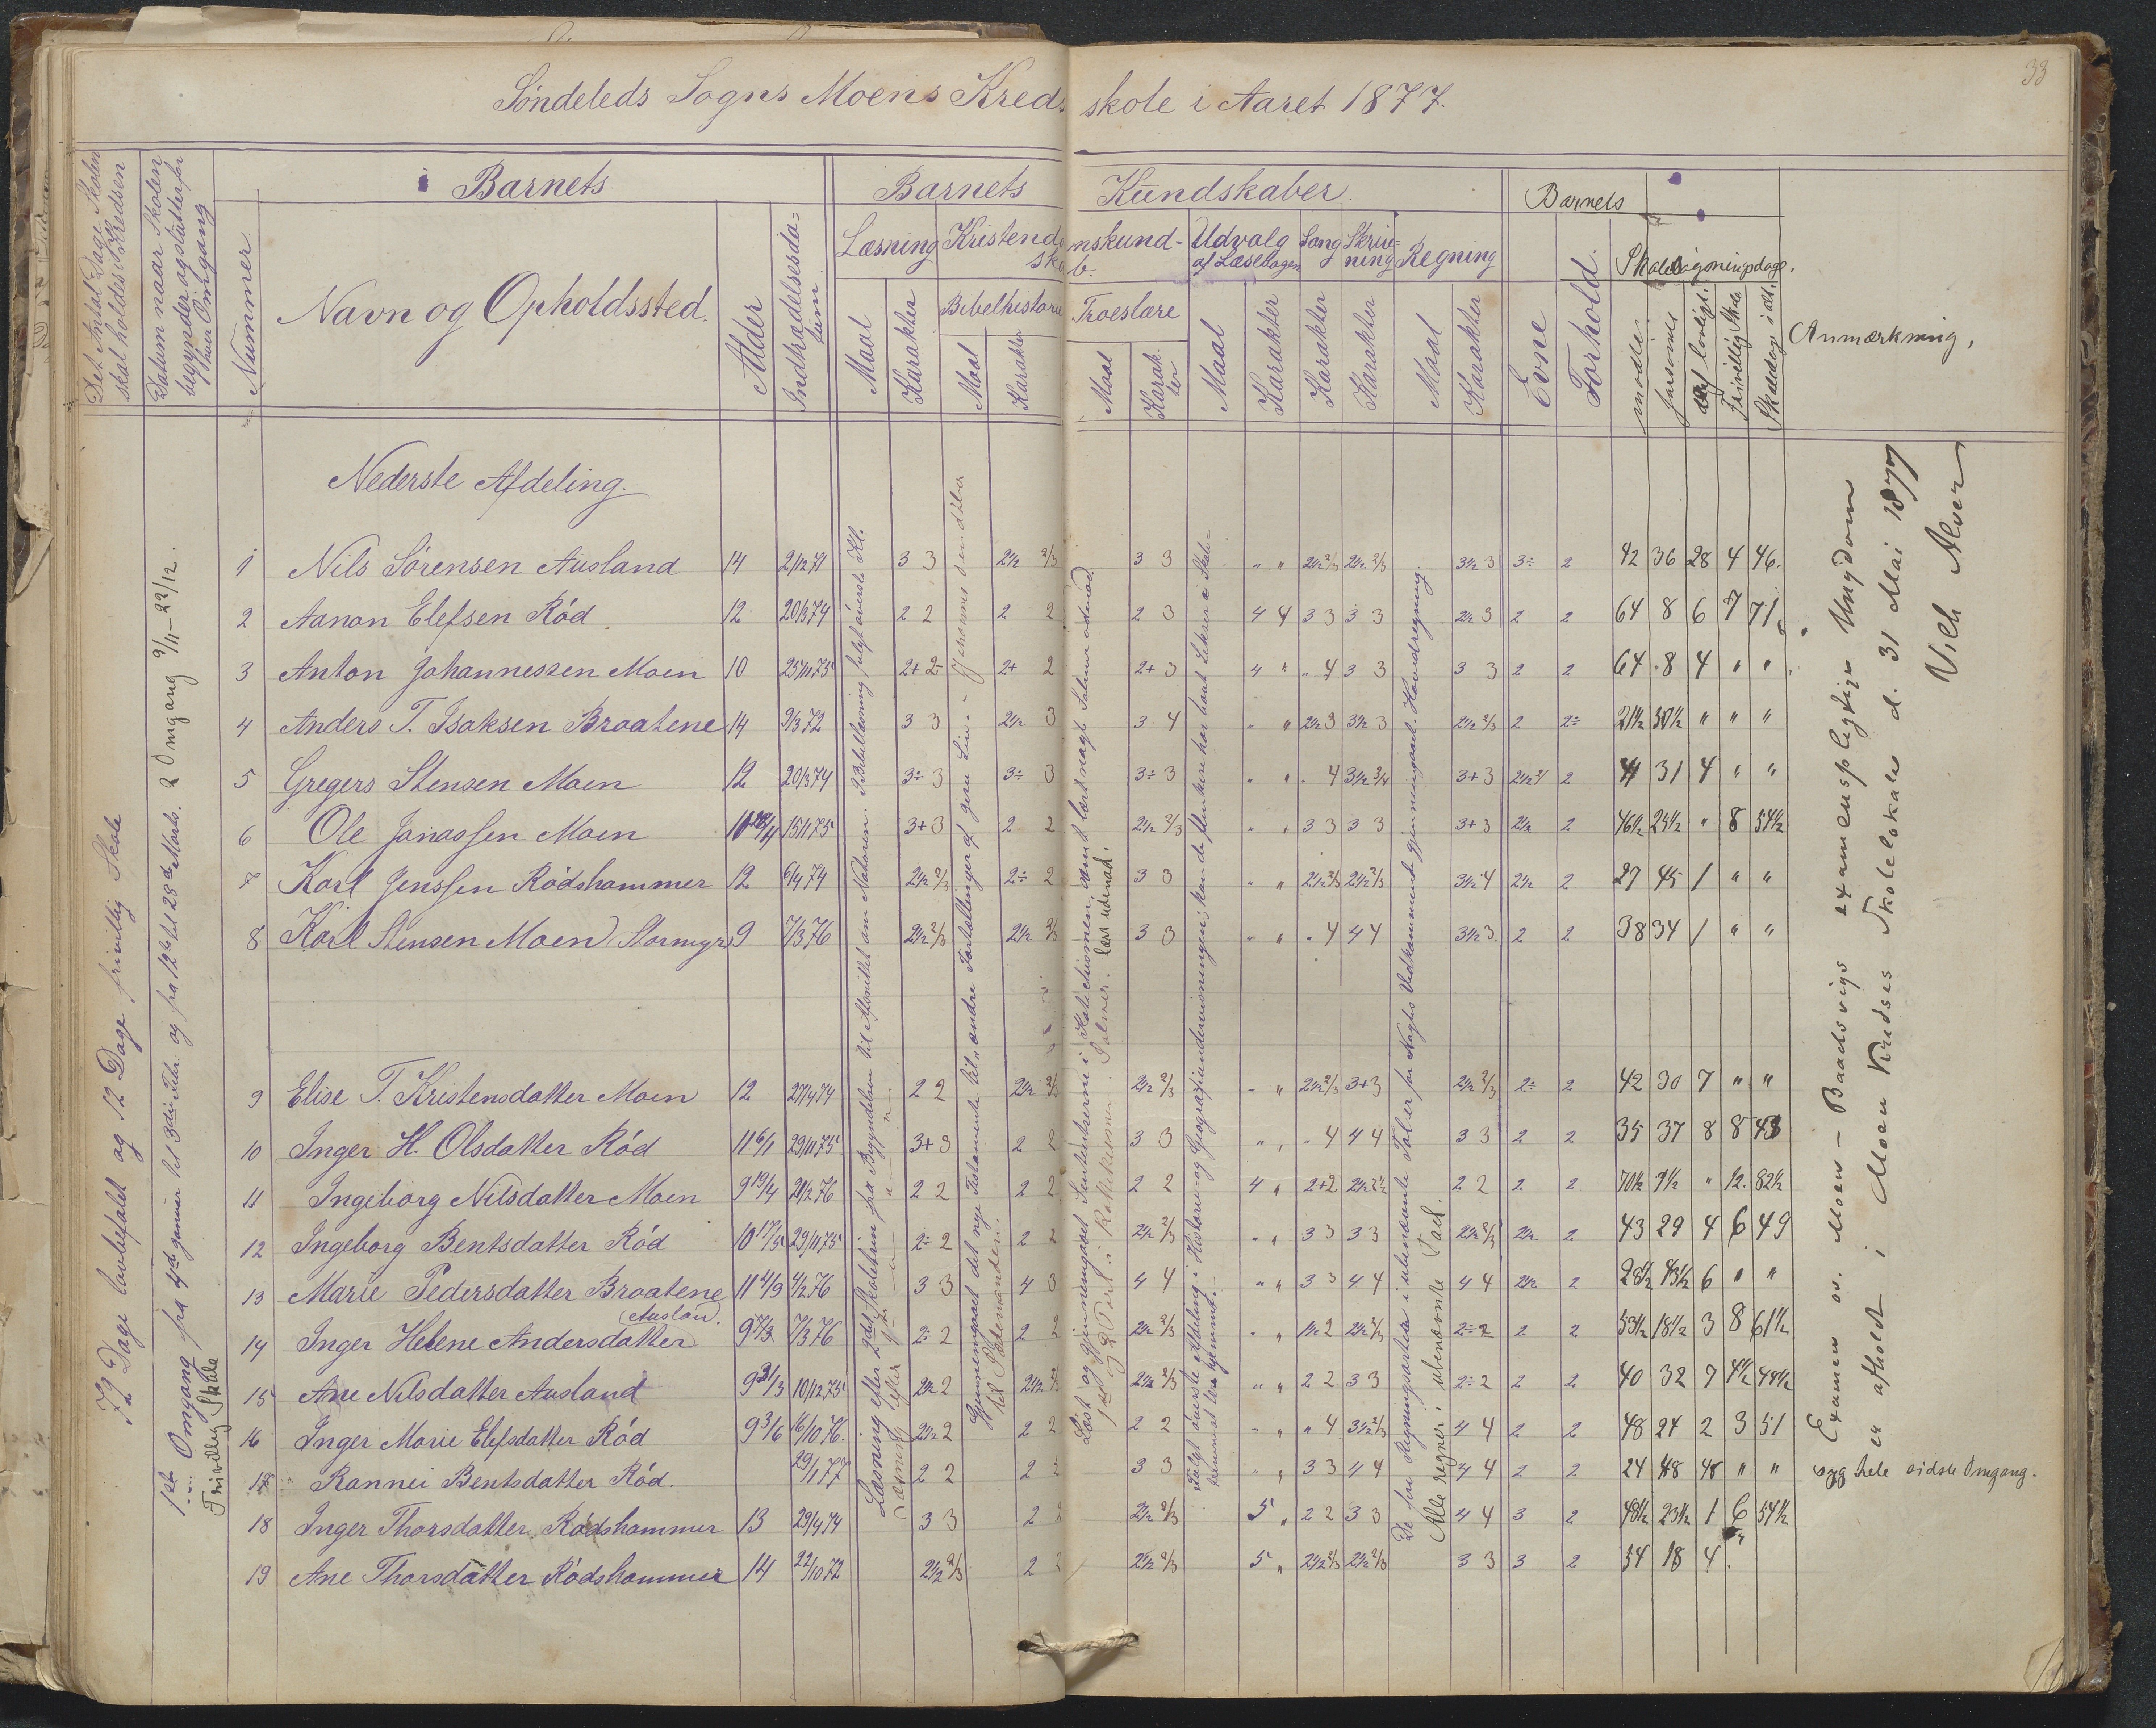 33
Söndeleds Sogns Moens Kredsskole i Aaret 1877.
Det Antal Dage Skolen skal holdes i Kredsen
Datum naar Skolen begynder og slutter for hver Omgang
Nummer
Barnets
Navn og Opholdssted.
Alder
Indtrædelsesdatum
Barnets Kundskaber.
Læsning
Maal
Karakter
Kristendomskundskab.
Bibelhistorie
Maal
Karakter
Troeslære
Maal
Karakter
Udvalg af Læsebogen
Maal
Karakter
Sang
Karakter
Skrivning
Karakter
Regning
Maal
Karakter
Barnets
Evne
Forhold.
mødte
forsømte
Anmærkning,
Nederste Afdeling.
1 Nils Sörensen Ausland 14 2/12 71 3 3 2½ 2/3 3 3 " " 2½ 2/3 2½ 2/3 3½ 3 3÷ 2 42 36 28 4 46.
2 Aanon Elefsen Röd 12 20/3 74 2 2 2 2 2 3 4 4 3 3 3 3 2½ 3 2 2 64 8 6 7 71
3 Anton Johannessen Moen 10 25/11 75 2+ 2 2+ 2 2+ 3 4 " " 4 3 3 3 3 2 2 64 8 4 " "
4 Anders T. Isaksen Braatene 14 9/3 72 3 3 2½ 3 3 4 " " 2½ 3 3½ 3 2½ 2/3 2 2÷ 21½ 50½ " " "
5 Gregers Stensen Moen 12 20/3 74 3÷ 3 3÷ 3 3÷ 3 " " " 4 3½ 3/4 3+ 3 2½ 2 41 31 4 " "
6 Ole Jonassen Moen 15/11 75 3+ 3 2 2 2½ 2/3 " " 3 3 3 3 3+ 3 2½ 2 46½ 25½ " 8 54½
7 Karl Jenssen Rödshammer 12 6/4 74 2½ 2/3 2÷ 2 3 3 " " 2½ 2/3 2½ 2/3 3½ 4 2½ 2 27 45 1 " "
8 Karl Stensen Moen Stormyr 9 7/3 76 2½ 2/3 2½ 2/3 3 3 " " " 4 4 4 3½ 3 2 2 38 34 1 " "
9 Elise T. Kristensdatter Moen 12 27/4 74 2 2 2½ 2/3 2½ 2/3 " " 2½ 2/3 3+ 3 2½ 2/3 2÷ 2 42 30 7 " "
10 Inger H. Olsdatter Röd 11 6/1 29/11 75 3+ 3 2 2 3 3 " " " 4 4 4 3 3 2 2 35 37 8 8 43
11 Ingeborg Nilsdatter Moen 9 19/4 21/2 76 2 2 2 2 2 2 4 " 2+ 2 2½ 2½ 2 2 2 2 70½ 9½ " 12. 82½
12 Ingeborg Bentsdatter Röd 10 17/5 29/11 75 2÷ 2 2 2 2½ 2/3 " " 3 3 3 3 2½ 2/3 2½ 2 43 29 4 6 49
13 Marie Pedersdatter Braatene 11 4/9 4/2 76 3 3 4 3 4 4 " " 3 3 4 4 4 4 2½ 2 28½ 43½ 6 " "
14 Inger Helene Andersdatter (Ausland). 9 7/3 7/3 76 2÷ 2 2 2 2½ 2/3 " " 1½ 2 2½ 2/3 2÷ 2 2 2 53½ 18½ 3 8 61½
15 Ane Nilsdatter Ausland 9 31/3 10/12 75 2½ 2 2½ 2/3 2½ 2/3 " " 2 2 3 3 2÷ 2 2 2 40 32 9 4½ 44½
16 Inger Marie Elefsdatter Röd 9 3/6 16/10 76. 2½ 2 2 2 2 2 " " " 4 3½ 2/3 4 4 2 2 48 24 2 3 51
17 Rannei Bentsdatter Röd. 29/1 77 2 2 2 2 3 3 " " 3 3 4 4 4 4 2 2 24 48 48 " " syg hele sidste Omgang.
18 Inger Thorsdatter Rödshammer 13 29/4 74 3 3 2 2 2½ 2/3 5 " 2 2 3 3 4 4 3 2 48½ 23½ 1 6 54½
19 Ane Thorsdatter Rödshammer 14 22/10 72 2½ 2/3 2 2½ 2/3 5 " 2½ 2/3 2½ 2/3 3 3 3 2 54 18 4
72 Dage lovbefalet og 12 Dage frivillig Skole
1ste Omgang fra 4de Januar til 3die Febr. og fra 12te til 28de Marts. 2 Omgang 9/11 – 22/12.
Frivillig Skole
Læsning efter 2det Skoletrin fra Begyndelsen til Afsnittet om Naturen. Bibellæsning fulgt överste Kl.
Læsning efter 1ste
Gjennemgaaet det nye Testamente til
til Pådemanden.
Læst og gjennemgaaet Sententserne i Katechismen, samt lært nogle Salmer udenad.
1ste og 2 Part i Katekismen. Salmer. lært udenad.
Fulgt överste Afdeling i Historie og Geografiundervisningen; kan de flinkere har havt Lekser i Skolen
De fire Regningsarter i ubenævnte Tal er for Nogles Vedkommende gjennemgaaet. Hovedregning.
Alle regner i ubenævnte Tal.
Examen ov. Moen – Baadsvigs examenspligtige Ungdom
er afholdt i Moen Kredses Skolelokale d. 31 Mai 1877
Vilh Alver